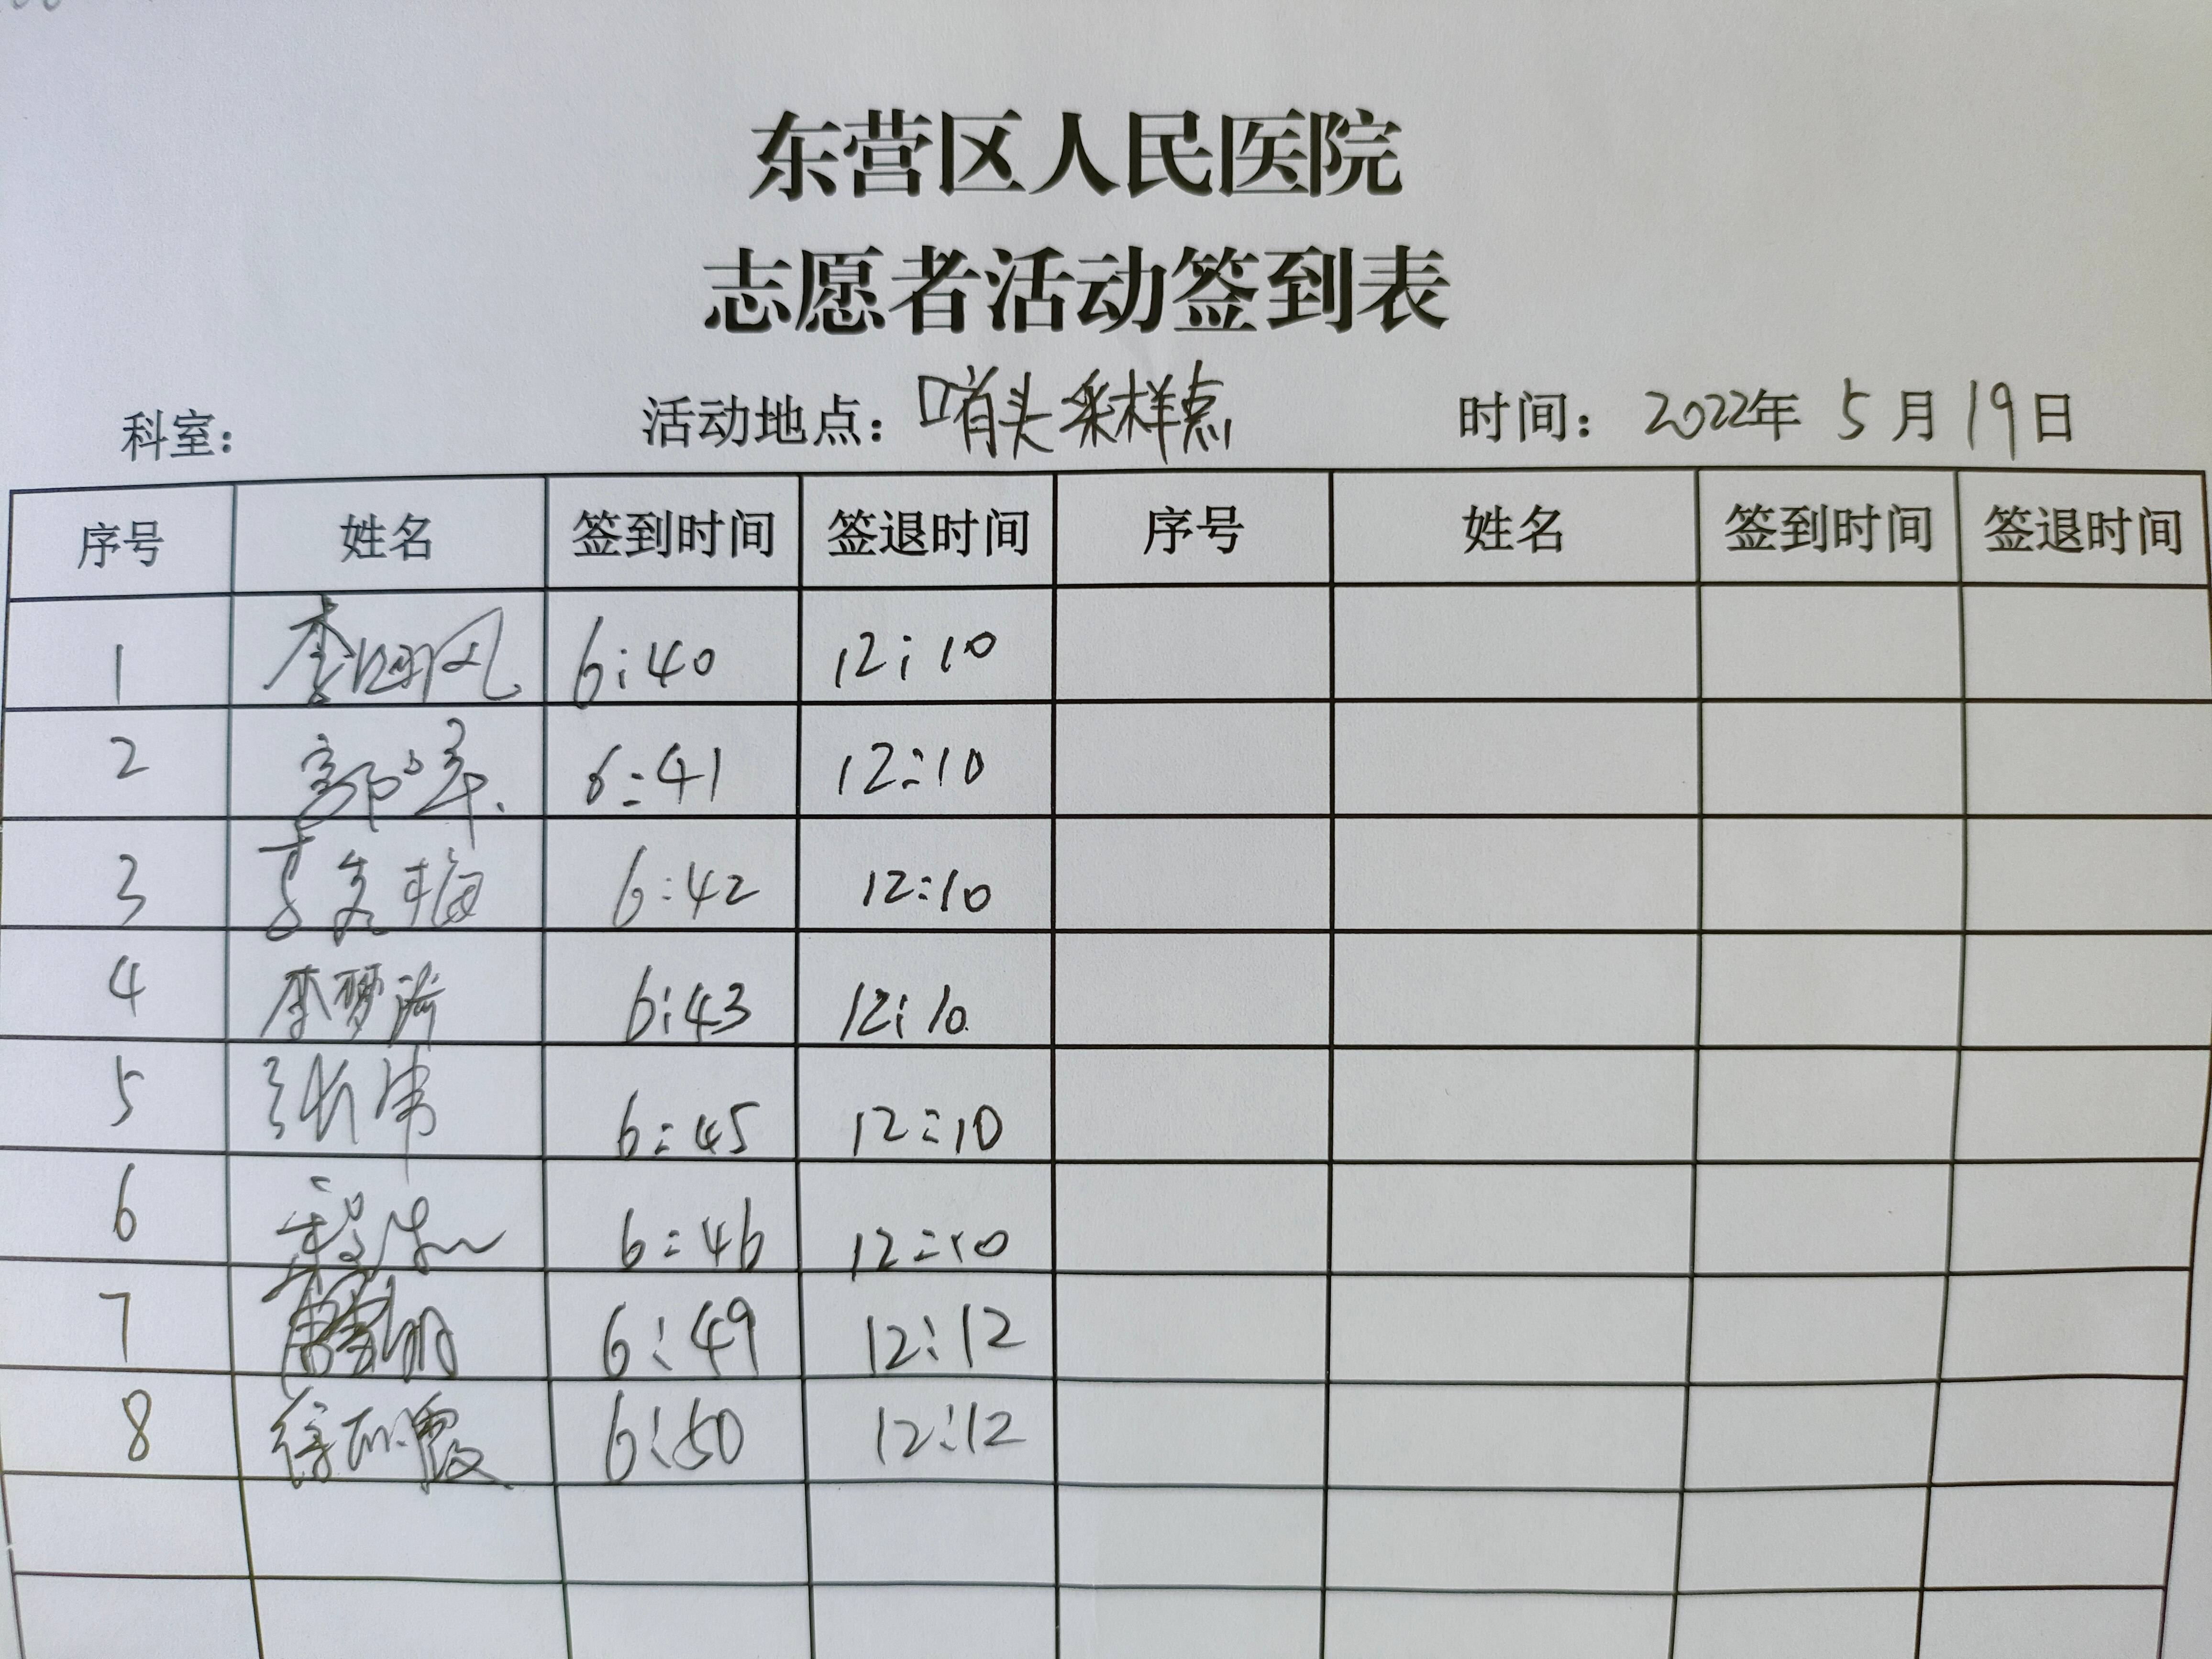 东营区人民医院
志愿者活动签到表
科室： 活动地点：哨头采样点 时间：2022年 5月19日
序号 姓名 签到时间 签退时间 序号 姓名 签到时间 签退时间
1 6:40 12:10
2 6:41 12:10
3 6:42 12:10
4 李梦 6:43 12:10
5 张伟 6:45 12:10
6 6:46 12:10
7 6:49 12:12
8 徐 霞 6:50 12:12